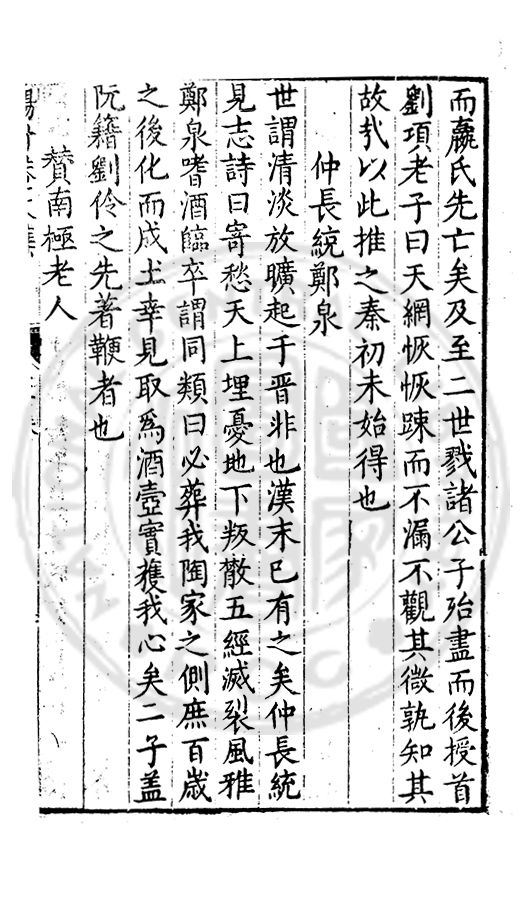 而嬴氏先亡矣及至二世戮諸公子殆盡而後授首
劉項老子曰天網恢恢踈而不漏不觀其微孰知其
故㢤以此推之秦初未始得也
仲長統鄭泉
世謂清淡放曠起于晋非也漢末已有之矣仲長統
見志詩曰寄愁天上埋憂地下叛散五經滅裂風雅
鄭泉嗜酒臨卒謂同類曰必葬我陶家之側庶百歲
之後化而成土幸見取為酒壺實獲我心矣二子盖
阮籍劉伶之先著鞭者也
賛南極老人